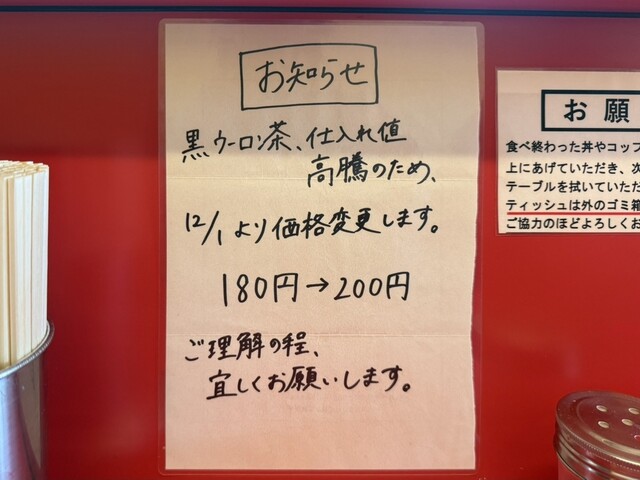 お知らせ
黒ウーロン茶、仕入れ値
高騰のため、
12/1より価格変更します。
180円→200円
ご理解の程、
宜しくお願いします。
お願
食べ終わった丼やコップ
上にあげていただき、次
テーブルを拭いていただ
ティッシュは外のゴミ箱
ご協力のほどよろしくお